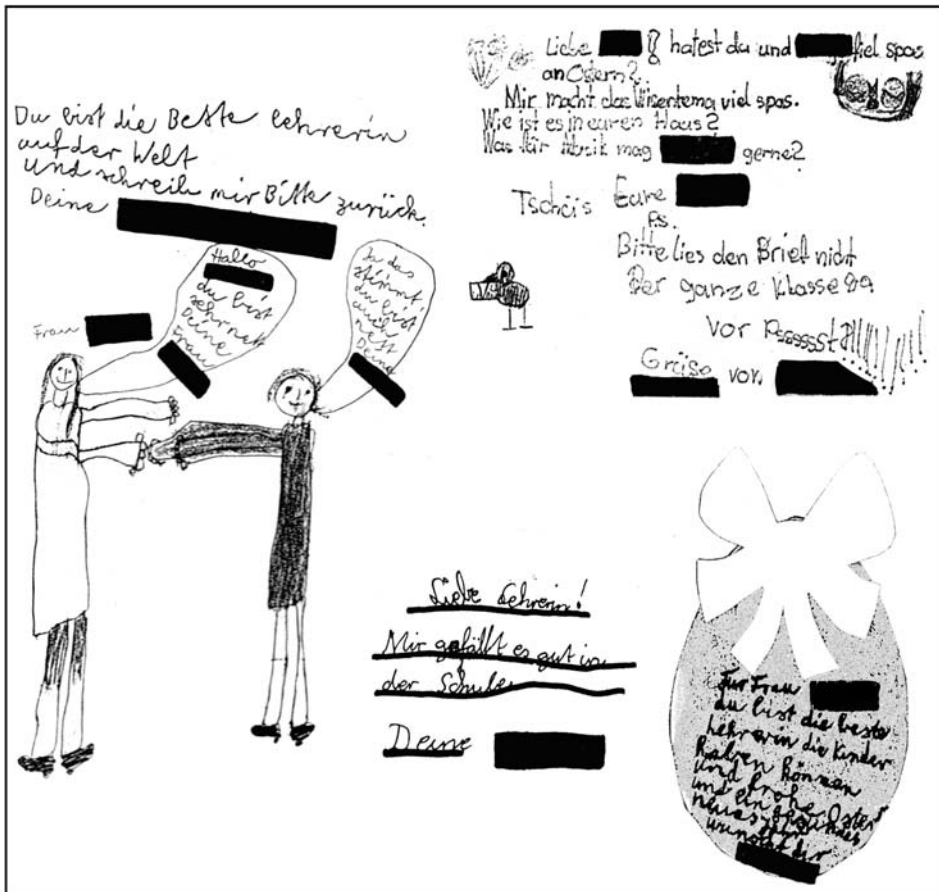 Du bist die Beste Lehrerin
auf der Welt
und schreib mir Bitte zurück.
Deine
Frau
Hallo
du bist
sehr nett
Deine
Frau
Ja das
stimmt
du bist
auch
nett
Deine
Liebe hatest du und fiel spas
an Ostern?
Mir macht das Wisentema viel spas.
Wie ist es in euren Haus?
Was für mag gerne?
Tschüis Eure
P.s.
Bitte lies den Brief nicht
Der ganze Klasse
vor Psssssst!!!!!!!
Grüse von
Liebe Lehrerin!
Mir gefällt es gut in
der Schule
Deine
Für Frau
du bist die beste
Lehrerin die Kinder
haben können
und frohe Ostern
und ein gesundes
neues Jahr
wünscht dir